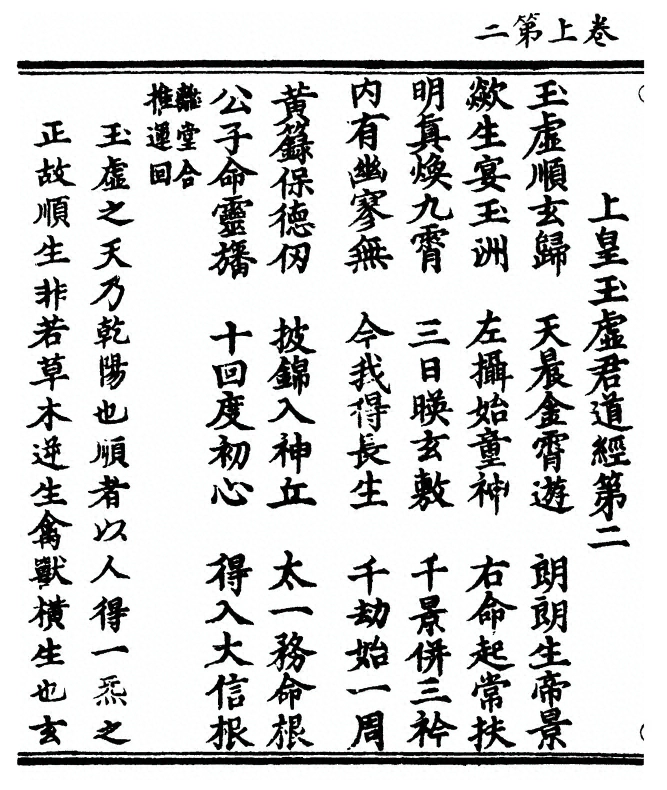 卷上第二
上皇玉虛君道經第二
玉虛順玄歸　天晨金霄遊　朗朗生帝景
歘生宴玉洲　左攝始童神　右命起常扶
明真煥九霄　三日暎玄敷　千景併三衿
内有幽寥無　今我得長生　千劫始一周
黄籙保德仭　披錦入神丘　太一務命根
公子命靈旛　十回度初心　得入大信根
離堂合
推運回
玉虛之天乃乾陽也順者以人得一炁之
正故順生非若草木逆生禽獸横生也玄